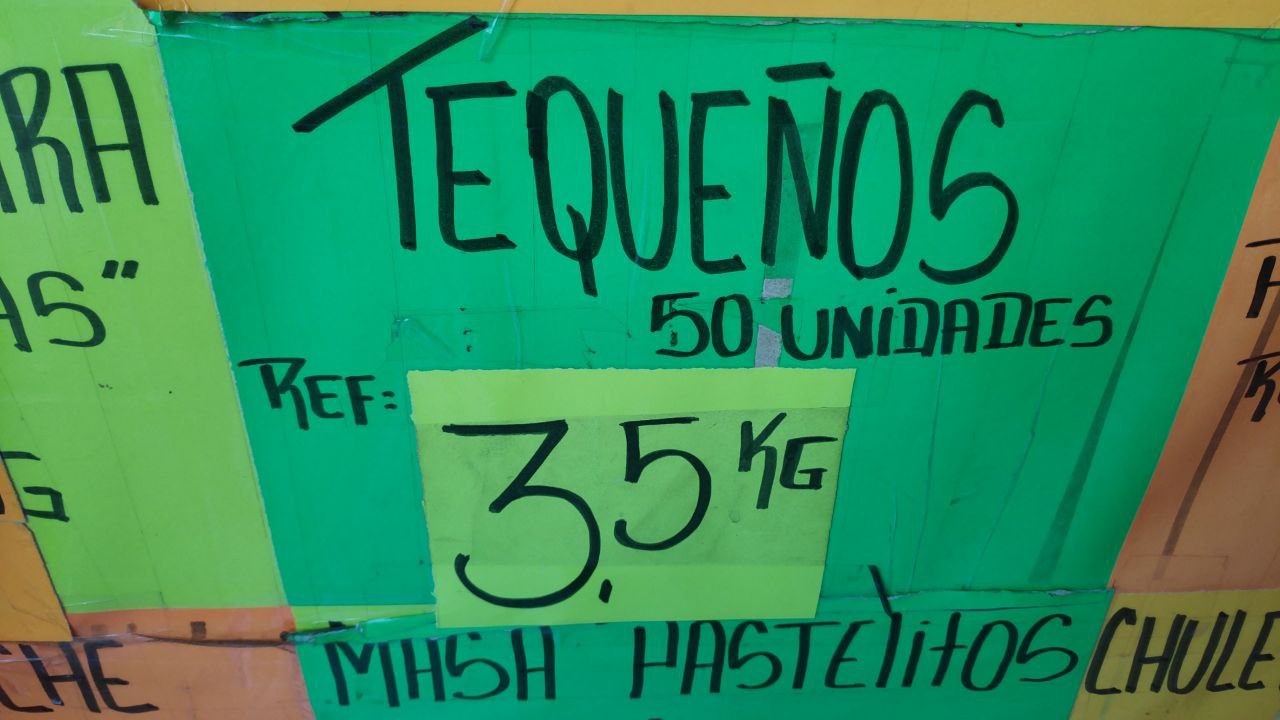 TEQUEÑOS
50 UNIDADES
REF:
3,5 KG
MASA PASTELitOS
RA
AS"
G
CHE
CHULE